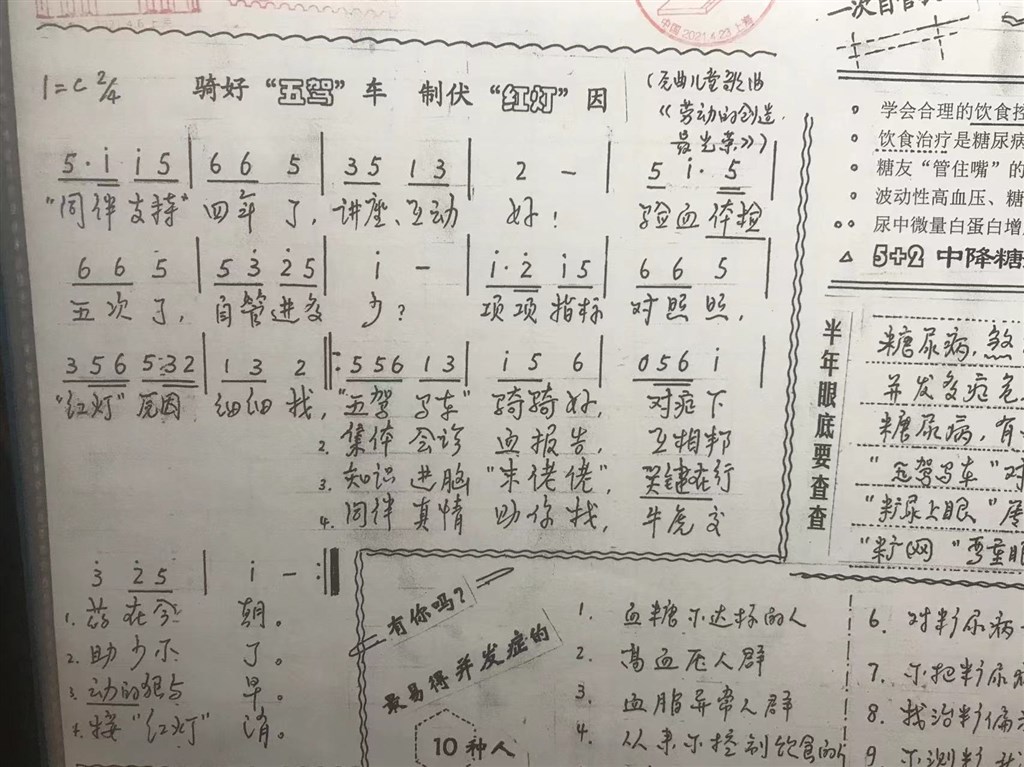 中国 2021.4.23 上海
1=C 2/4
骑好“五驾”车 制伏“红灯”因
(原曲儿童歌曲
《劳动的创造
最光荣》)
5·i i5 | 66 5 | 35 13 | 2 - | 5 i·5
“同伴支持” 四年了, 讲座、互动 好! 验血体检
66 5 | 53 25 | i - | i·2 i5 | 66 5 |
五次了, 自管进多少? 项项指标 对照照,
356 5·32 | 13 2 ‖: 556 13 | i5 6 | 056 i |
“红灯”原因 细细找, “五驾马车”骑骑好, 对症下
2. 集体会诊 血报告, 互相帮
3. 知识进脑“朱佬佬”, 关键在行
4. 同伴真情 助你找, 牛虎交
3 25 | i - :‖
1. 药在今朝。
2. 助少不了。
3. 动的狠与早。
4. 接“红灯”消。
学会合理的饮食控
饮食治疗是糖尿病
糖友“管住嘴”的
波动性高血压、糖
尿中微量白蛋白增
△ 5+2 中降糖
半年眼底要查查
糖尿病,
并发多症危
糖尿病,有
“五驾马车”对
“糖尿上眼”
有你吗?
最易得并发症的
10种人
1. 血糖不达标的人
2. 高血压人群
3. 血脂异常人群
4. 从来不控制饮食的
6. 对糖尿病
7. 不把糖尿病
8. 找治糖偏
9. 不测糖